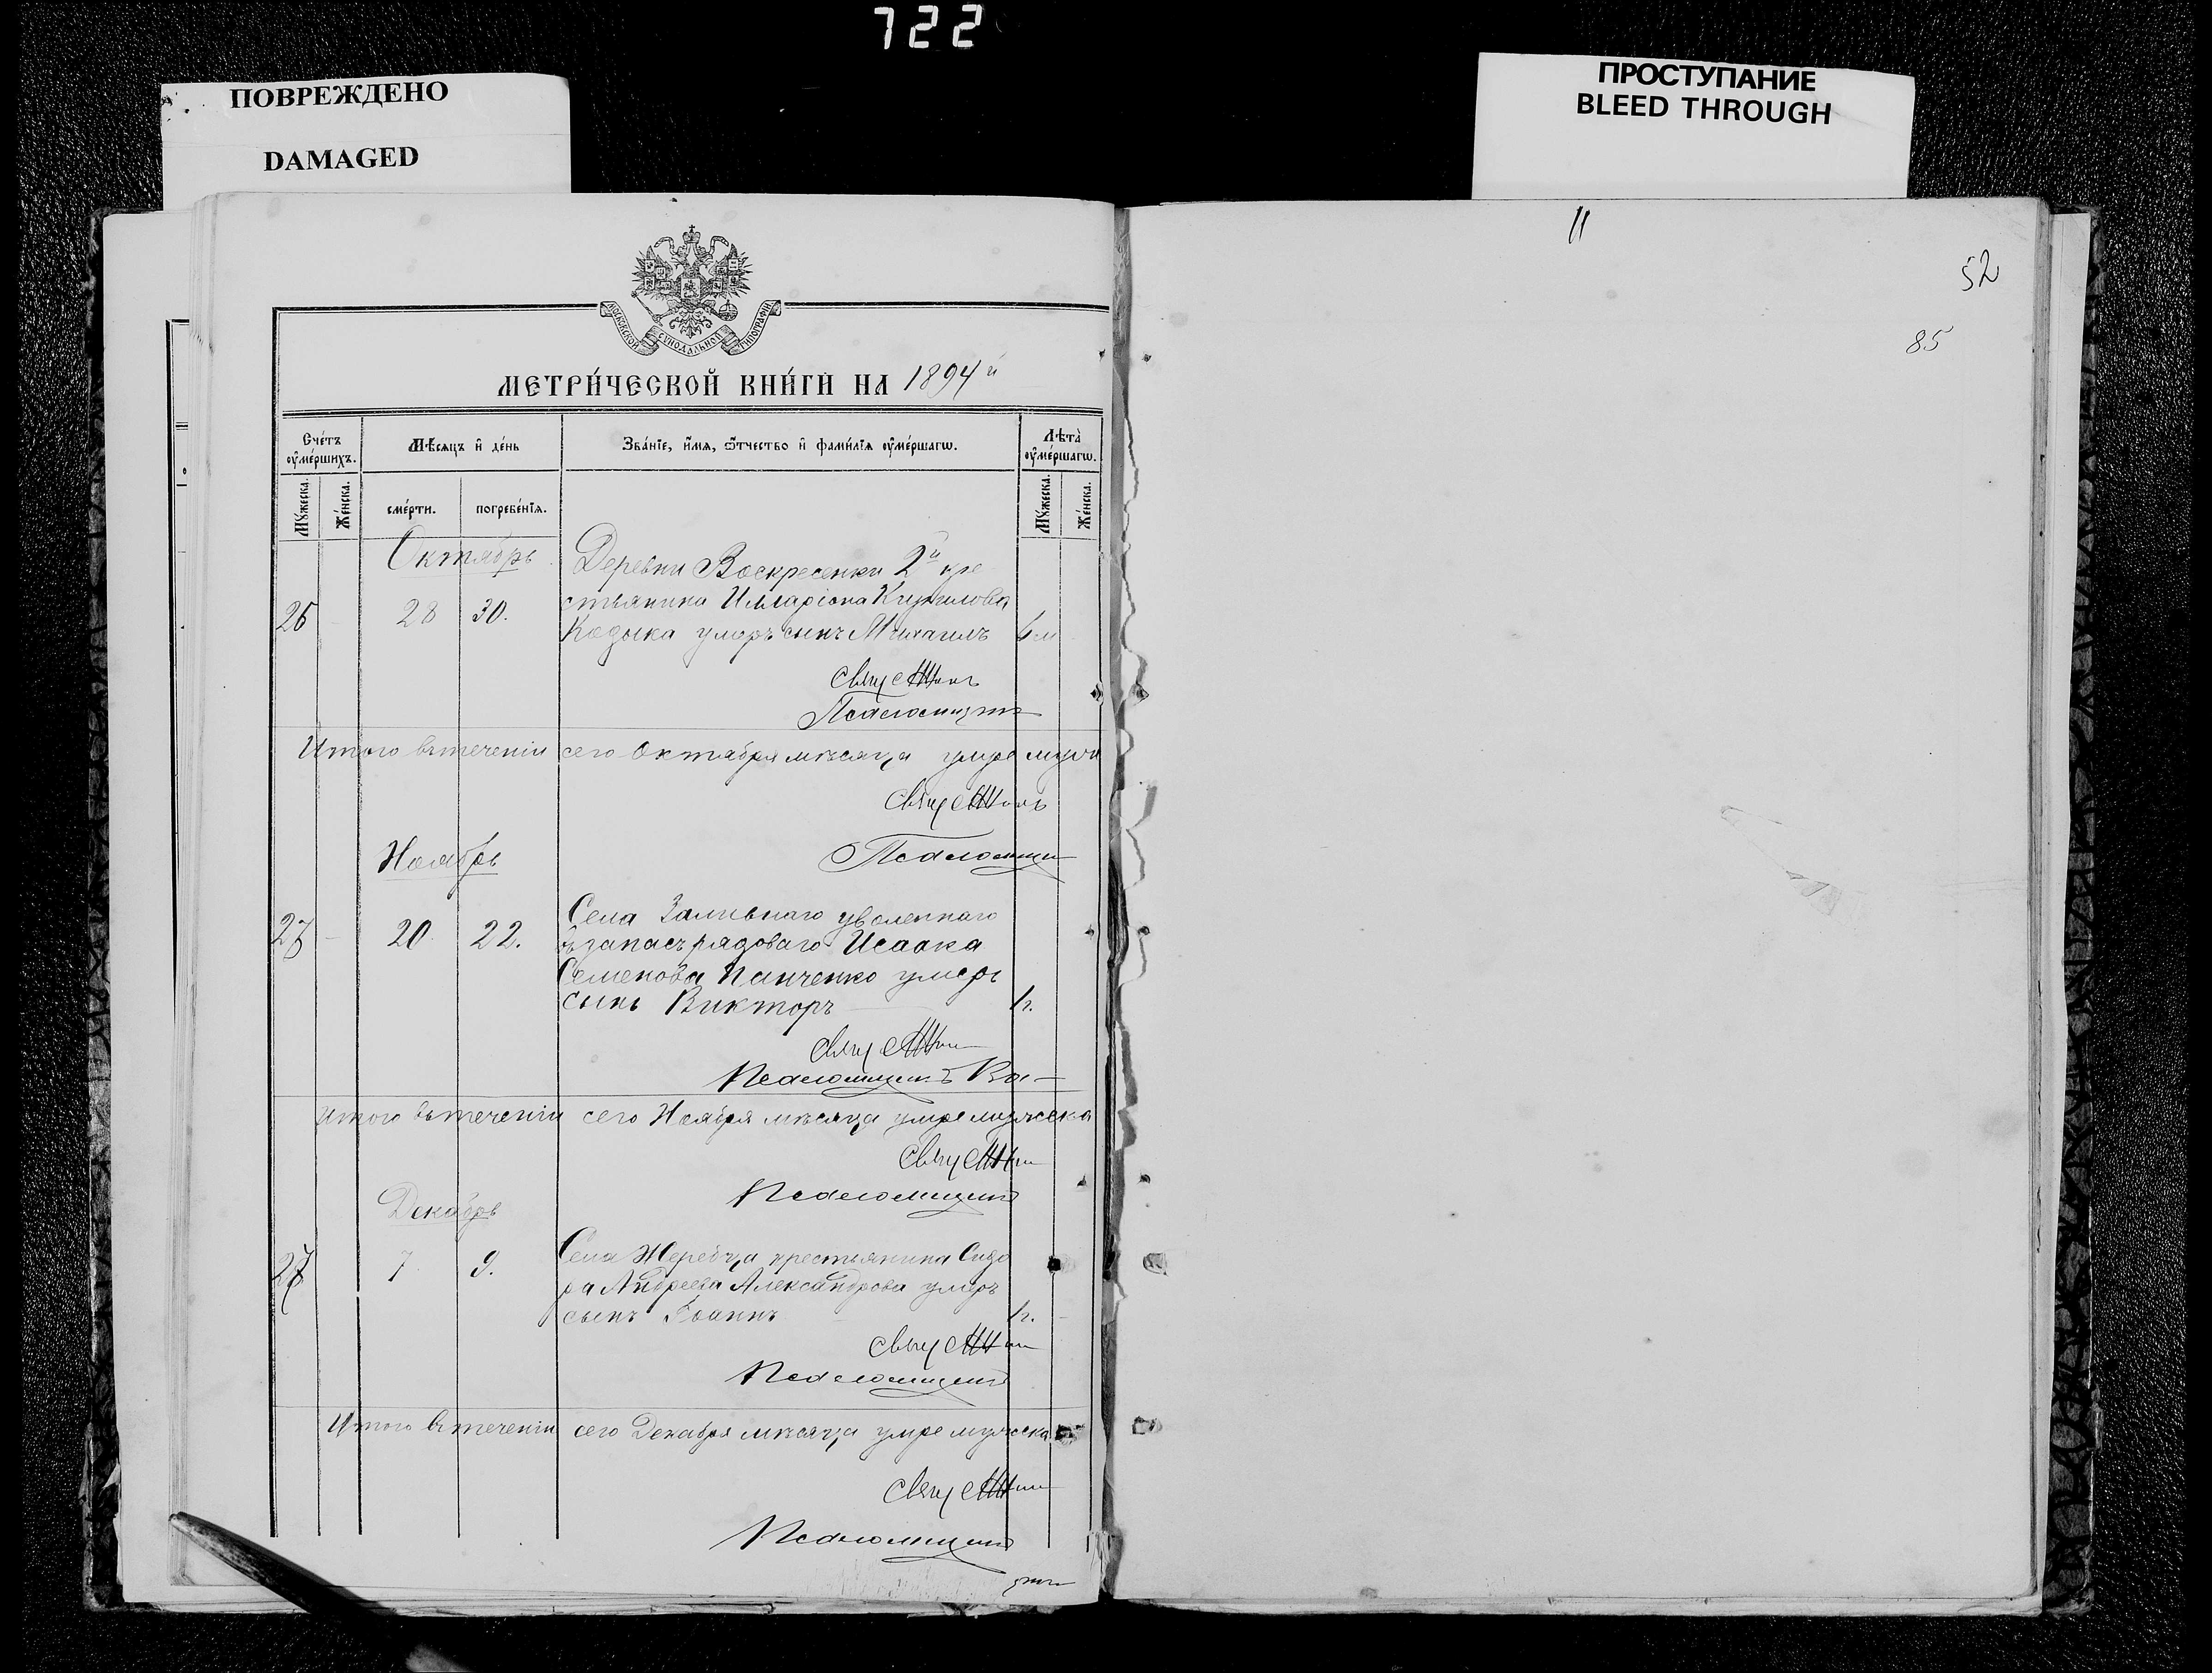 722
ПОВРЕЖДЕНО
DAMAGED
ПРОСТУПАНИЕ
BLEED THROUGH
11
52
85
МОСКОВСКОЙ СУНОДАЛЬНОЙ ТИПОГРАФІИ
МЕТРИ́ЧЕСКОЙ КНИ́ГИ НА 1894й
Сче́тъ ᲂу҆ме́ршихъ.
Мѣ́сяцъ и҆ де́нь
Зва́нїе, и҆́мѧ, ѻ҆́тчество и҆ фами́лїѧ ᲂу҆ме́ршагѡ.
Лѣта̀ ᲂу҆ме́ршагѡ.
Мꙋ́жеска.
Же́нска.
сме́рти.
погребе́нїѧ.
Мꙋ́жеска.
Же́нска.
Октябрь
Деревни Воскресенки 2й кре
26 - 28 30. стьянина Илларіона Кирилова
Кодыка умеръ сынъ Михаилъ 6 м
Свящ
Псаломщикъ
Итого втеченіи сего Октября мѣсяца умре муж
Свящ
Ноябрь
Псаломщи
Села Заливнаго уволеннаго
27 - 20 22. въ запасъ рядоваго Исаака
Семенова Панченко умеръ
сынъ Викторъ 1 г.
Свящ
Псаломщикъ Ва
Итого втеченіи сего Ноября мѣсяца умре мужеска
Свящ
Псаломщикъ
Декабрь
Села Жеребца крестьянина Сидо
7 9. ра Андреева Александрова умеръ
сынъ Іоаннъ 1 г. -
Свящ
Псаломщикъ
Итого втеченіи сего Декабря мѣсяца умре мужеска
Свящ
Псаломщикъ